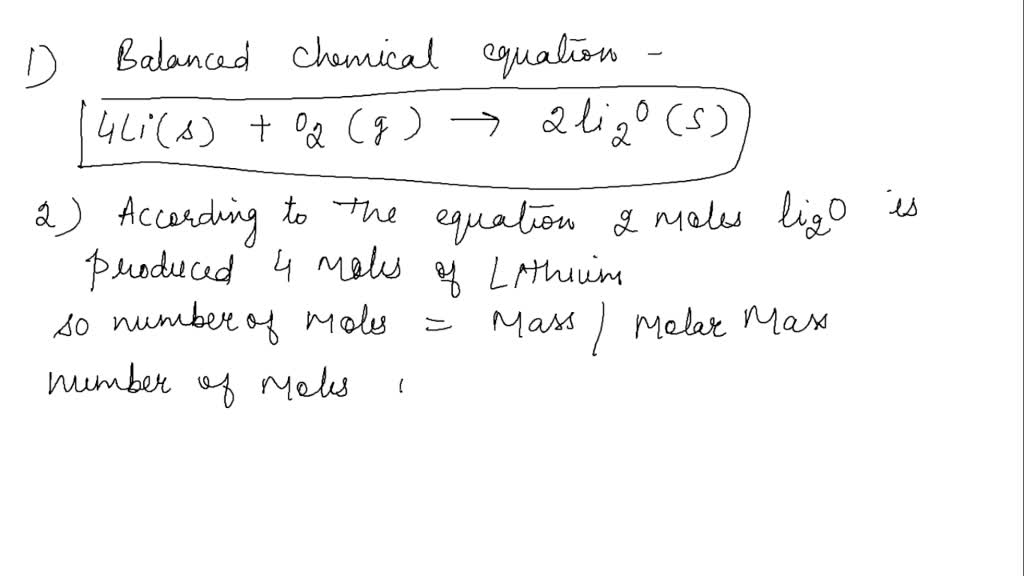 1) Balanced chemical equation -
4Li(s) + O2 (g) → 2 li2O (s)
2) According to the equation 2 moles li2O is
produced 4 moles of Lithium
so number of moles = Mass / Molar Mass
number of moles (